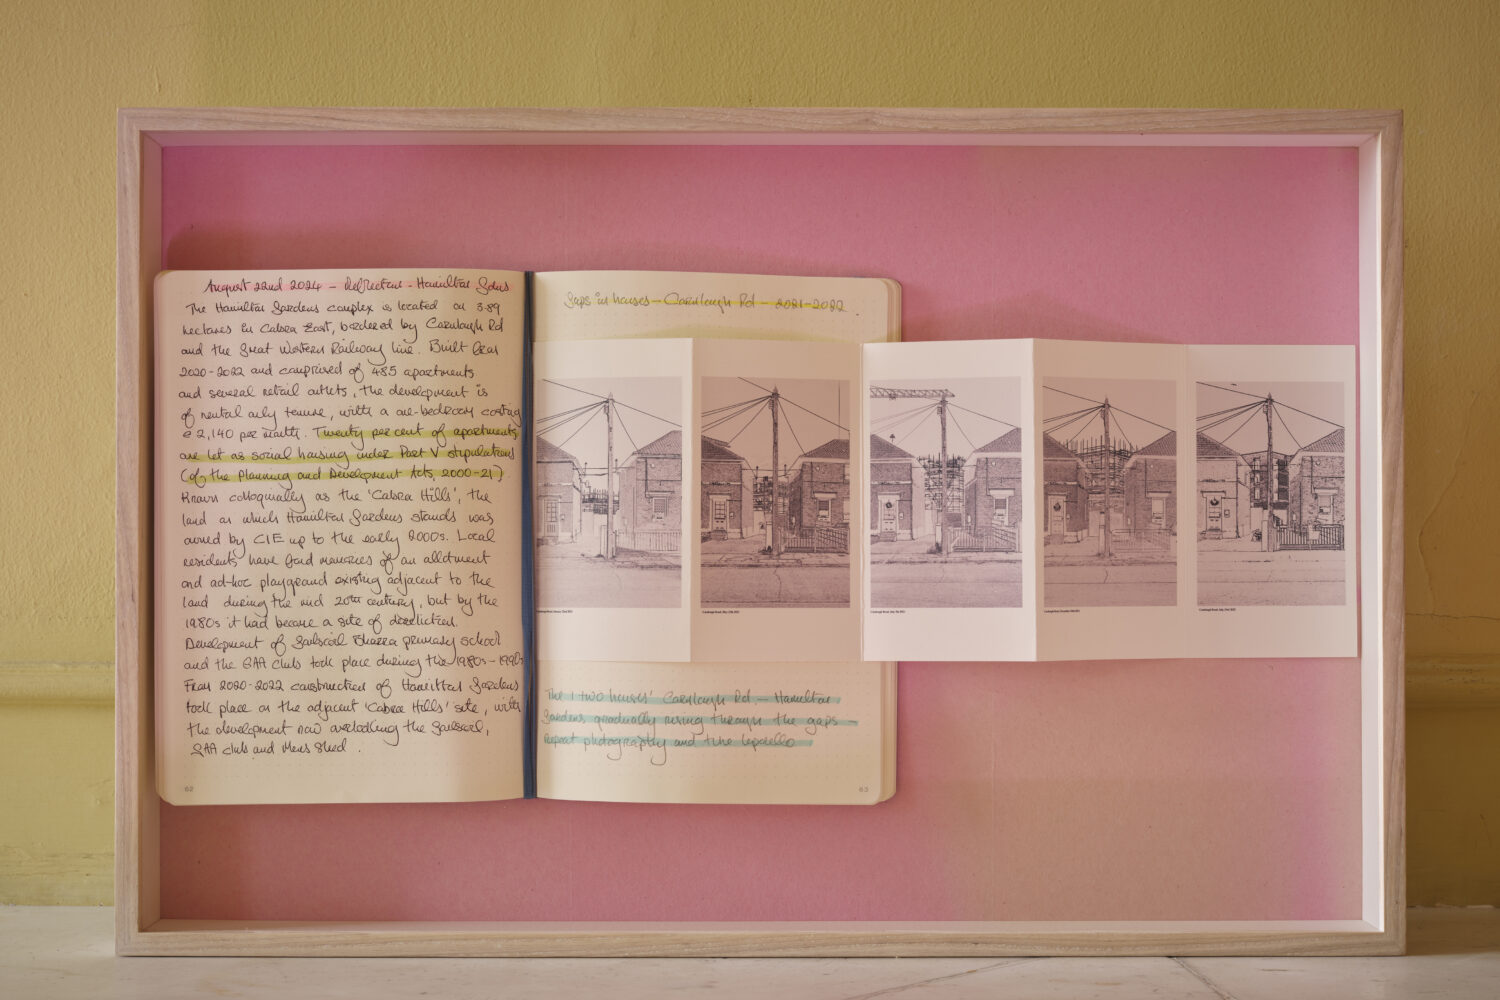 August 22nd 2024 – Reflections - Hamilton Gdns
The Hamilton Gardens complex is located on 3.89
hectares in Cabra East, bordered by Carnlough Rd
and the Great Western Railway line. Built from
2020-2022 and comprised of 485 apartments
and several retail outlets, the development is
of rental only tenure, with a one-bedroom costing
€ 2,140 per month. Twenty per cent of apartments
are let as social housing under Part V stipulations
(of the Planning and Development Acts, 2000-21)
Known colloquially as the 'Cabra Hills', the
land on which Hamilton Gardens stands was
owned by CIE up to the early 2000s. Local
residents have fond memories of an allotment
and ad-hoc playground existing adjacent to the
land during the mid 20th century, but by the
1980s it had become a site of dereliction.
Development of Gaelscoil Bharra primary school
and the GAA clubs took place during the 1980s-1990s
From 2020-2022 construction of Hamilton Gardens
took place on the adjacent 'Cabra Hills' site, with
the development now overlooking the Gaelscoil,
GAA club and Mens Shed.
62
Gaps in houses – Carnlough Rd – 2021-2022.
Carnlough Road, July 22nd 2022
The 'two houses' Carnlough Rd. – Hamilton
Gardens gradually rising through the gaps –
Repeat photography and the leporello
63